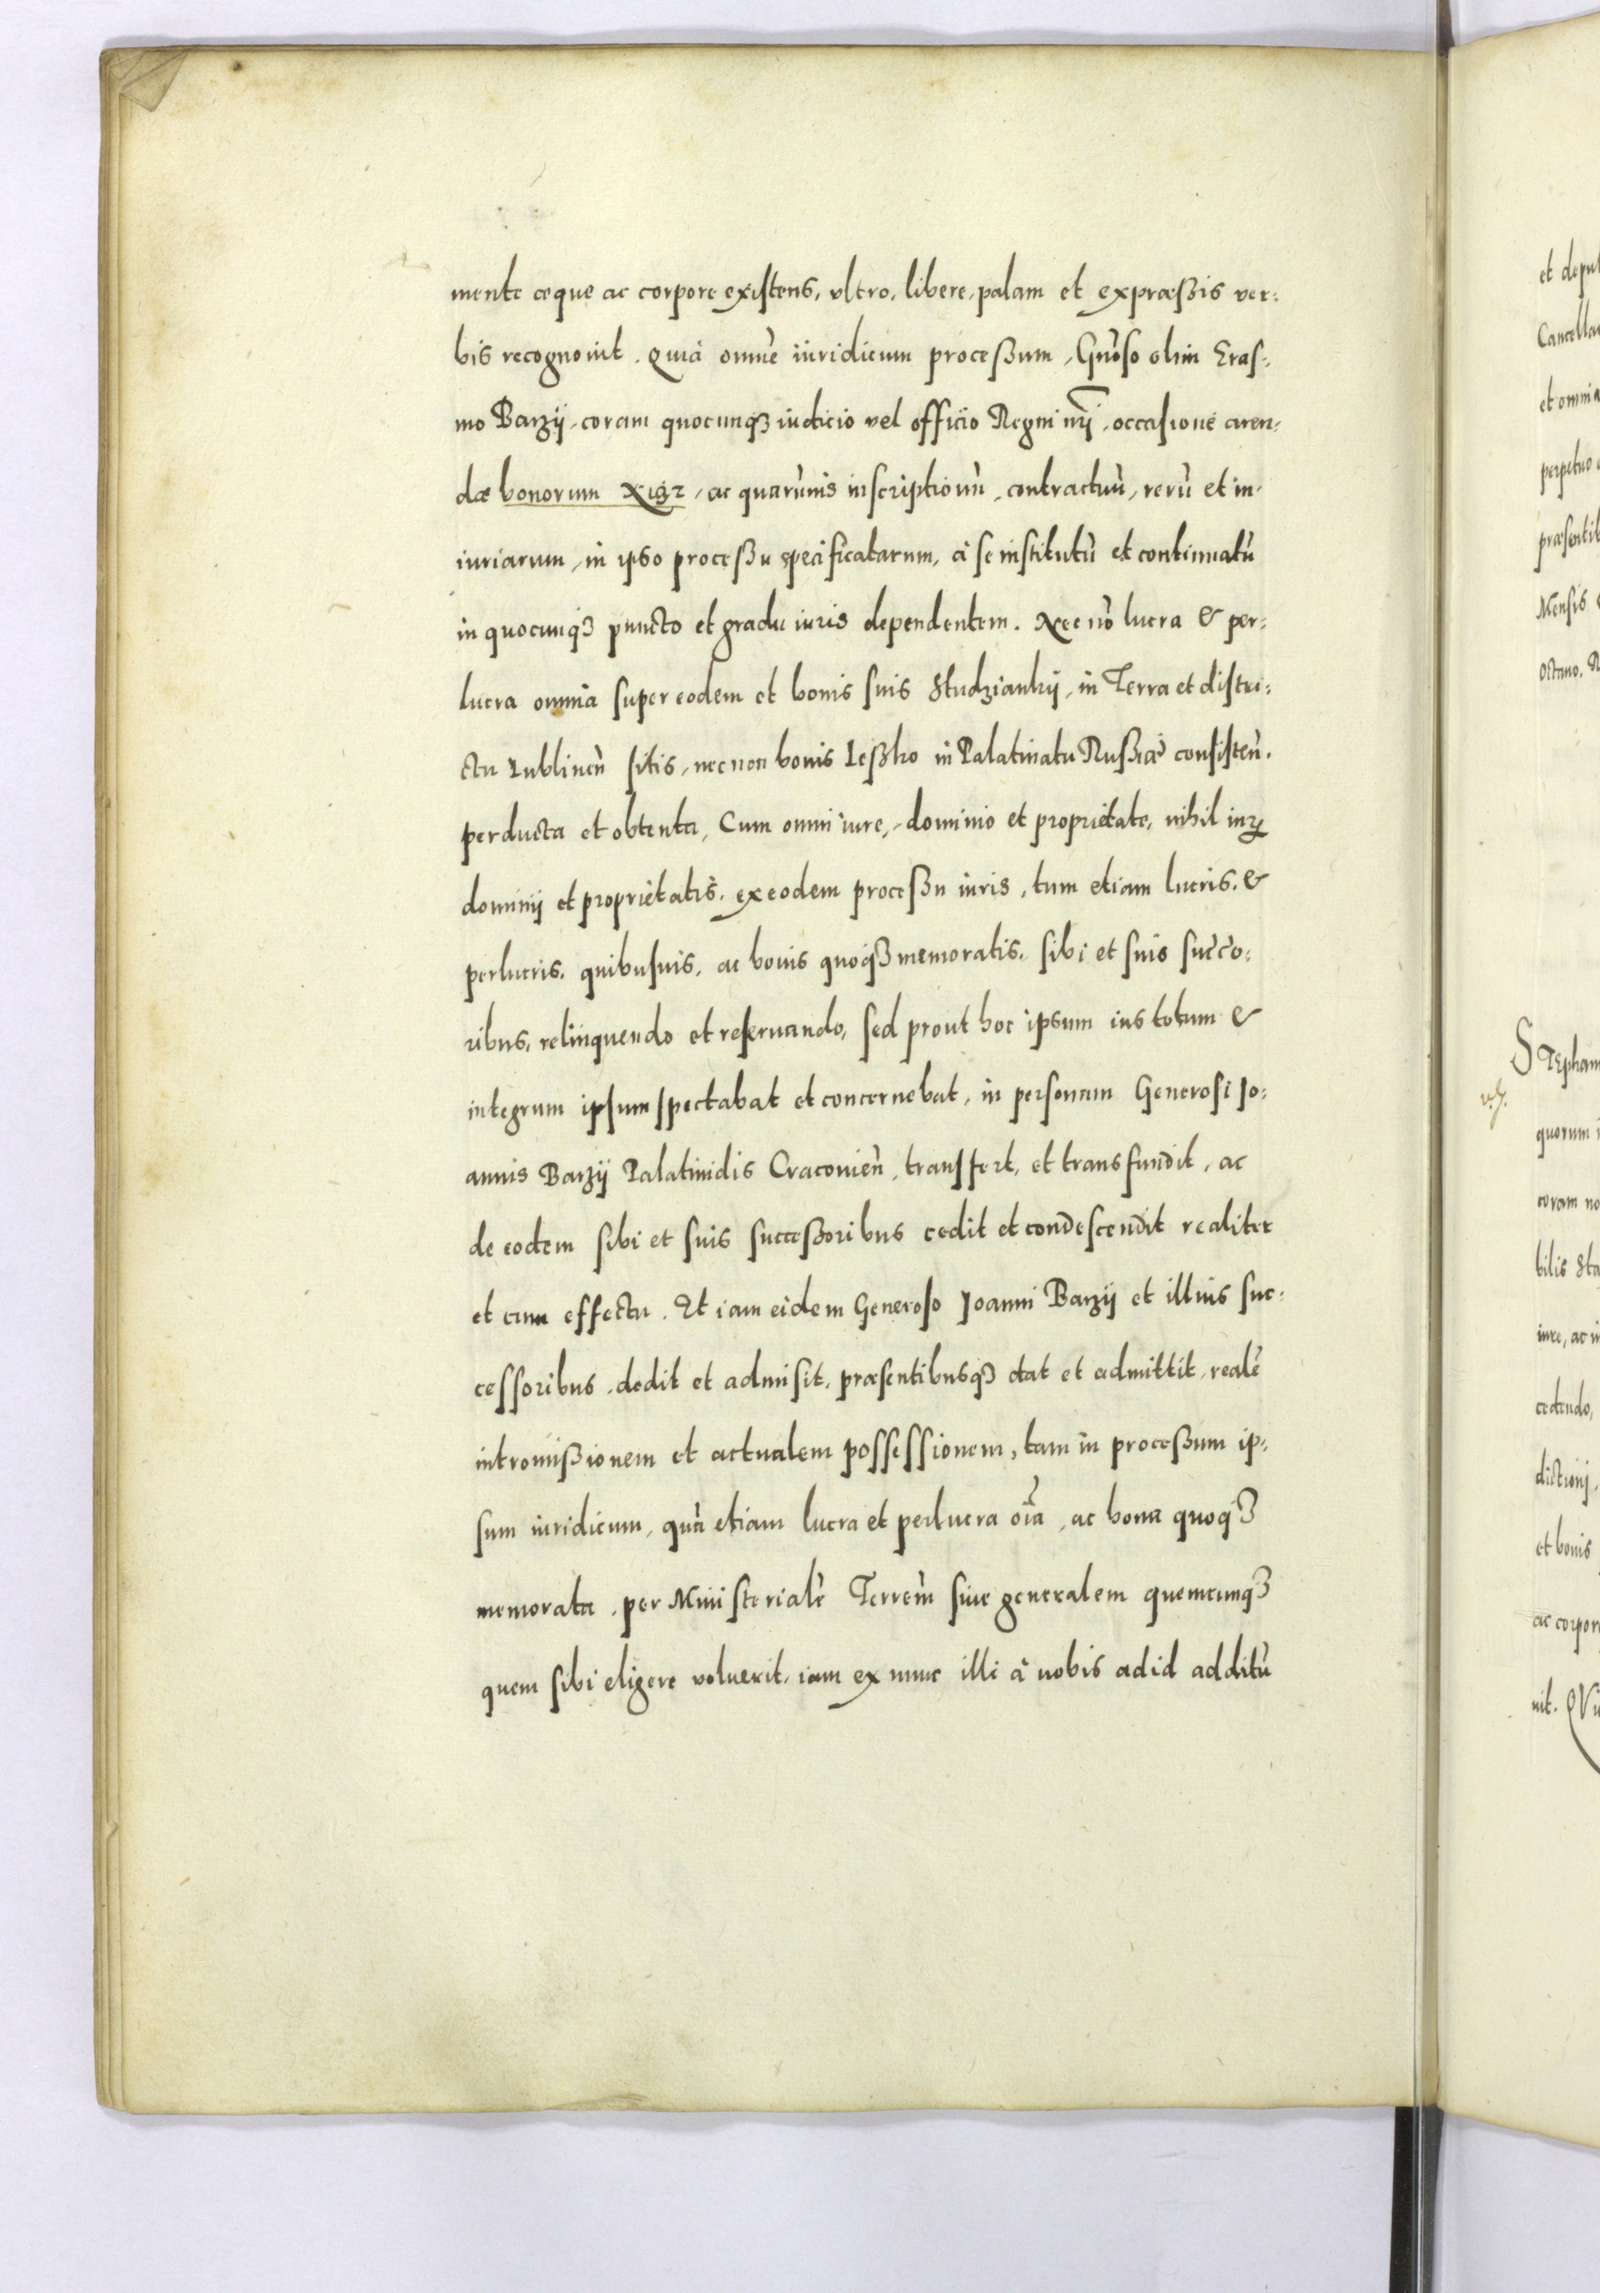 mente æque ac corpore existens, vltro, libere, palam et expræssis ver:
bis recognouit. Quia omnē iuridicum processum, Gnōso olim Eras:
mo Barzij, coram quocunq3 iudicio vel officio Regni nr̄i, occasione aren:
dæ bonorum, ac quarūuis inscriptionū, contractuū, rerū et in:
iuriarum, in ipso processu specificatarum, à se institutū et continuatū
in quocunq3 puncto et gradu iuris dependentem. Nec nō lucra & per:
lucra omnia super eodem et bonis suis Studziankij, in Terra et distri:
ctu Lublinen̄ sitis, nec non bonis Leszko in Palatinatu Russiæ consisten̄.
perducta et obtenta, Cum omni iure, dominio et proprietate, nihil iur̄
dominij et proprietatis, ex eodem processu iuris, tum etiam lucris, &
perlucris, quibusuis, ac bonis quoq3 memoratis, sibi et suis succō:
ribus, relinquendo et reseruando, sed prout hoc ipsum ius totum &
integrum ipsum spectabat et concernebat, in personam Generosi Io:
annis Barzij Palatinidis Cracouien̄, transfert, et transfundit, ac
de eodem sibi et suis successoribus cedit et condescendit realiter
et cum effectu. Et iam eidem Generoso Joanni Barzij et illius suc:
cessoribus, dedit et admisit, præsentibusq3 dat et admittit, realē
intromissionem et actualem possessionem, tam in processum ip:
sum iuridicum, quā etiam lucra et perlucra oīa, ac bona quoq3
memorata, per Ministerialē Terren̄ siue generalem quemcunq3
quem sibi eligere voluerit, iam ex nunc illi à nobis ad id additū
et depu
Cancella
et omnia
perpetuo
præsentib
Mensis
Octauo.
Stephan
quorum
coram no
bilis Sta
iure, ac i
cedendo,
dictioni,
et bonis
ac corpor
uit. QVi